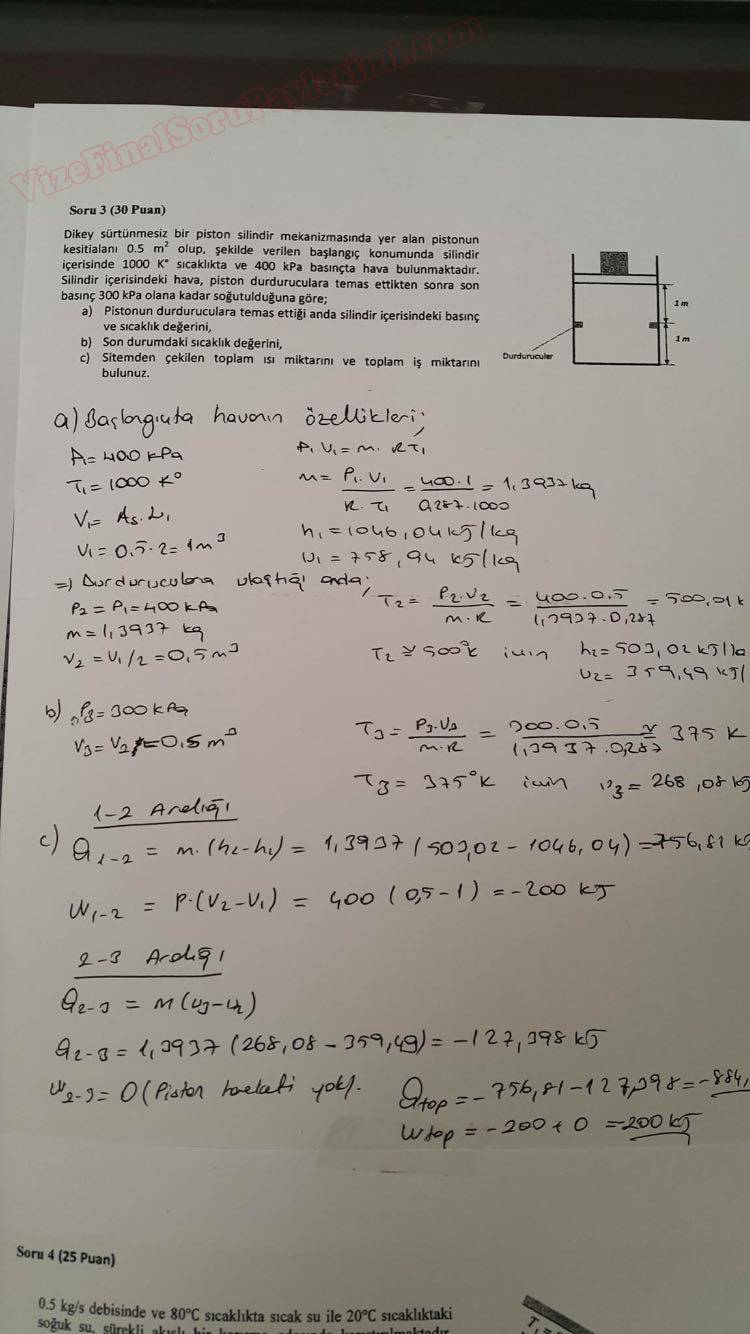 VizeFinalSoruPaylasimi.com
Soru 3 (30 Puan)
Dikey sürtünmesiz bir piston silindir mekanizmasında yer alan pistonun
kesitialanı 0.5 m² olup, şekilde verilen başlangıç konumunda silindir
içerisinde 1000 K° sıcaklıkta ve 400 kPa basınçta hava bulunmaktadır.
Silindir içerisindeki hava, piston durduruculara temas ettikten sonra son
basınç 300 kPa olana kadar soğutulduğuna göre;
a) Pistonun durduruculara temas ettiği anda silindir içerisindeki basınç
ve sıcaklık değerini,
b) Son durumdaki sıcaklık değerini,
c) Sitemden çekilen toplam ısı miktarını ve toplam iş miktarını
bulunuz.
1 m
1 m
Durdurucular
a) Başlangıçta havanın özellikleri;
P₁ = 400 kPa
T₁ = 1000 K°
V₁ = As.L₁
V₁ = 0.5.2 = 1m³
P₁ V₁ = m. RT₁
m = P₁.V₁ / R.T₁ = 400.1 / 0,287.1000 = 1,3937 kg
h₁ = 1046,04 kJ/kg
u₁ = 758,94 kJ/kg
=) Durduruculara ulaştığı anda;
P₂ = P₁ = 400 kPa
m = 1,3937 kg
V₂ = V₁/2 = 0,5 m³
T₂ = P₂.V₂ / m.R = 400.0.5 / 1,3937.0,287 = 500,01K
T₂ ≅ 500°K için h₂ = 503,02 kJ/
u₂ = 359,49 kJ/
b) P₃ = 300 kPa
V₃ = V₂ = 0,5 m³
T₃ = P₃.V₃ / m.R = 300.0,5 / 1,3937.0,287 ≅ 375 K
T₃ = 375°K için u₃ = 268,08 kJ
1-2 Aralığı
c) Q₁₋₂ = m.(h₂-h₁) = 1,3937 (503,02 - 1046,04) = -756,81 k
W₁₋₂ = P.(V₂-V₁) = 400 (0,5-1) = -200 kJ
2-3 Aralığı
Q₂₋₃ = m(u₃-u₂)
Q₂₋₃ = 1,3937 (268,08 - 359,49) = -127,398 kJ
W₂₋₃ = 0 (Piston hareketi yok).
Qtop = -756,81-127,398 = -884,
Wtop = -200 + 0 = -200 kJ
Soru 4 (25 Puan)
0.5 kg/s debisinde ve 80°C sıcaklıkta sıcak su ile 20°C sıcaklıktaki
soğuk su, sürekli akışlı bir